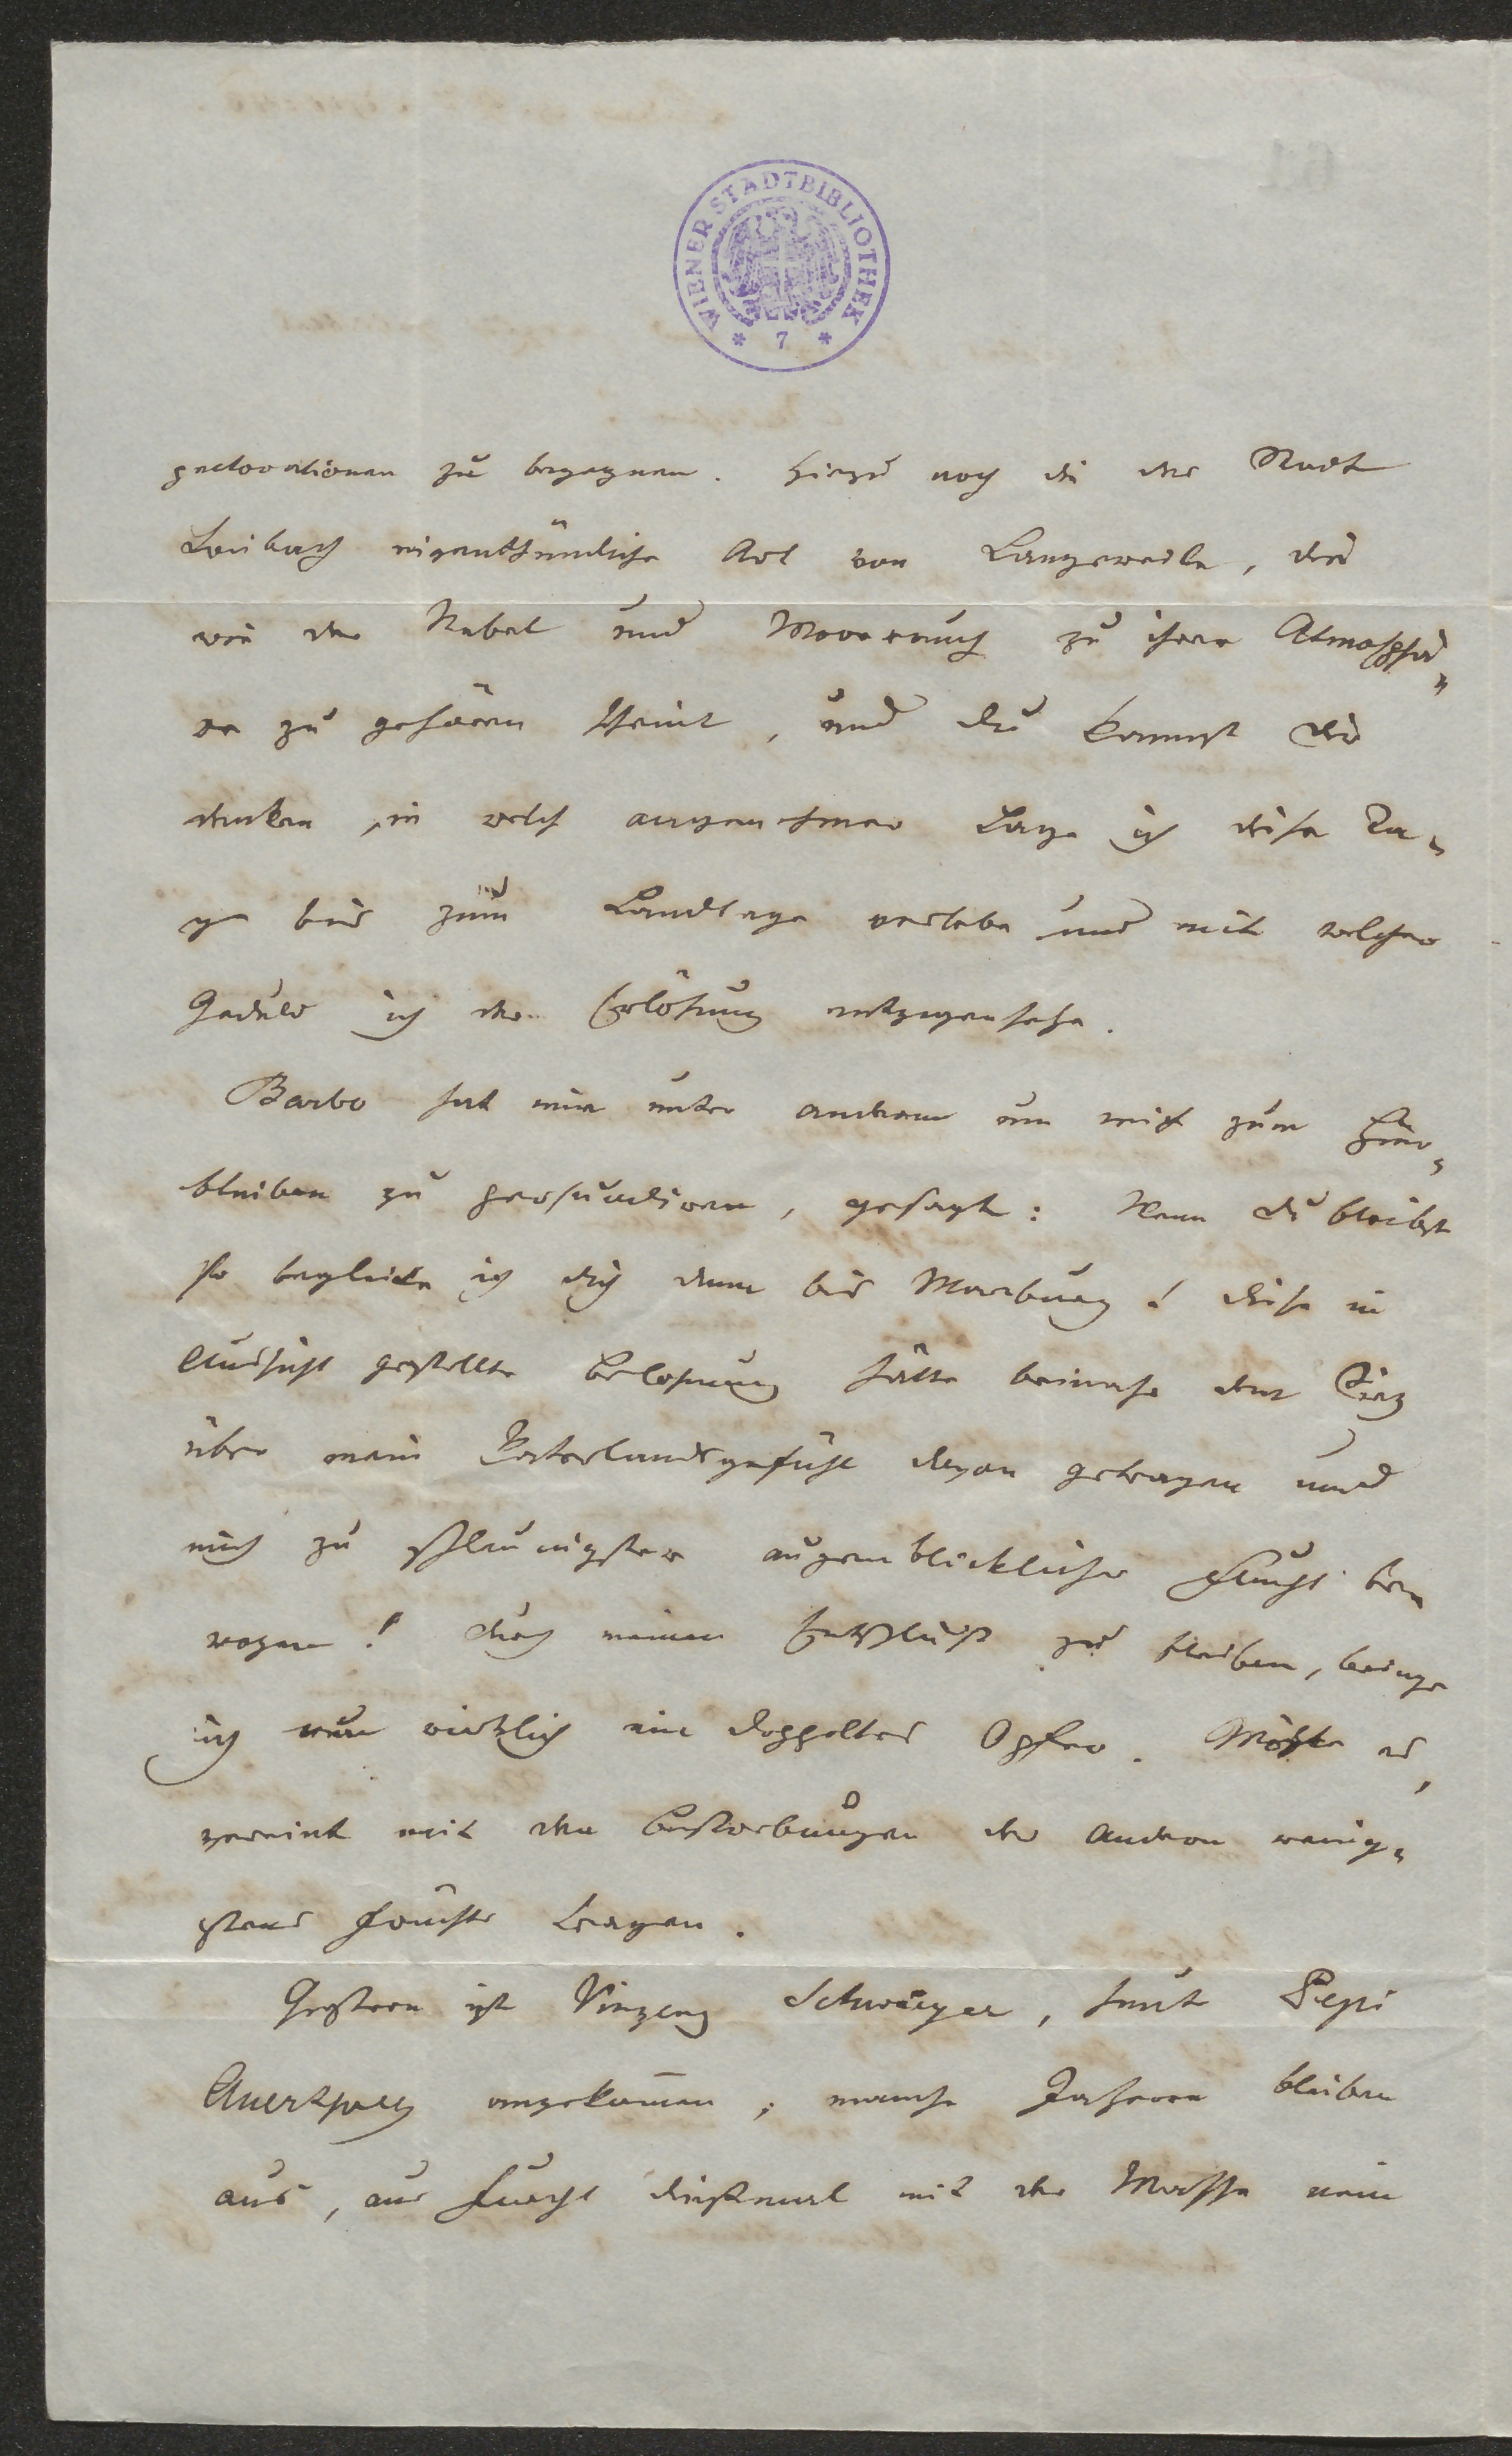 WIENER STADTBIBLIOTHEK
* 7 *
pectorationen zu begegnen. Hiezu noch die der Stadt
Laibach eigenthümliche Art von Langeweile, die
wie der Nebel und Moorrauch zu ihrer Atmosphä„
re zu gehören scheint, und du kannst dir
denken, in welch angenehmer Lage ich diese Ta„
ge bis zum Landtage verlebe und mit welcher
Geduld ich der Erlösung entgegensehe.
Barbo hat mir unter anderm um mich zum Hier„
bleiben zu persuadiren, gesagt: Wenn du bleibst
so begleite ich dich dann bis Marburg! Diese in
Aussicht gestellte Belohnung hätte beinahe den Sieg
über mein Vaterlandsgefühl davon getragen und
mich zu schleunigster augenblicklicher Flucht be„
wogen! Durch meinen Entschluß zu bleiben, bringe
ich nun wirklich ein doppeltes Opfer. Möchte es,
vereint mit den Bestrebungen der Andern wenig„
stens Früchte tragen.
Gestern ist Vinzenz Schweiger, heute Pepi
Auersperg angekommen; manche Herren bleiben
aus, aus Furcht dießmal mit der Masse nein